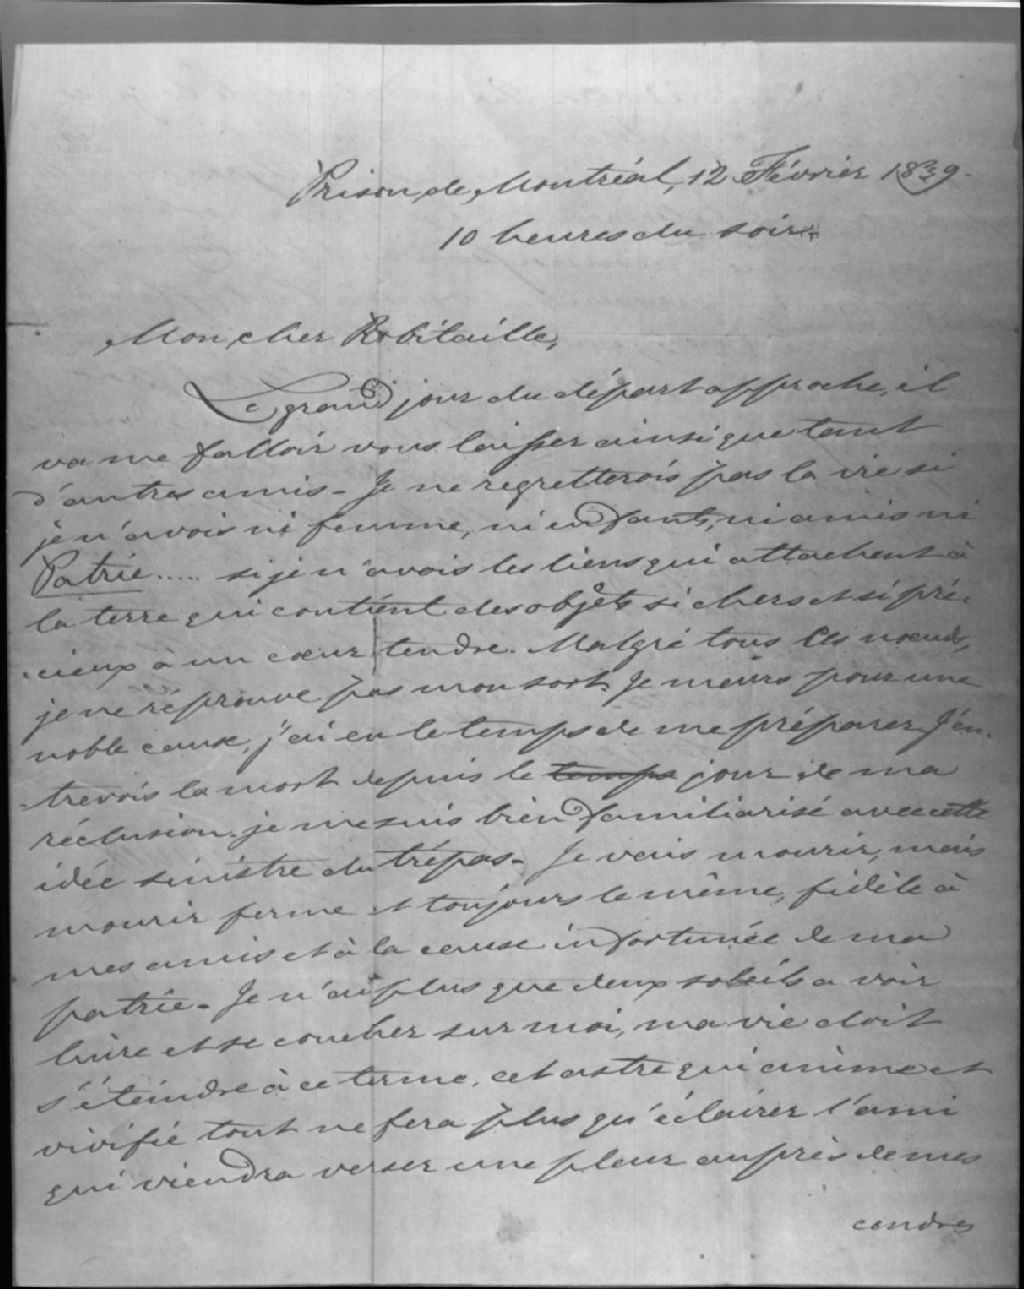 Prison de Montréal, 12 Février 1839.
10 heures du soir.
Mon cher Robitaille,
Le grand jour du départ approche, il
va me falloir vous laisser ainsi que tant
d'autres amis - Je ne regretterois pas la vie si
je n'avois ni femme, ni enfants, ni amis ni
Patrie..... si je n'avois les liens qui attachent à
la terre qui contient des objets si chers et si pré-
cieux à un cœur tendre. Malgré tous ces nœuds,
je ne réprouve pas mon sort. Je meurs pour une
noble cause, j'ai eu le temps de me préparer. J'en-
trevois la mort depuis le temps jour de ma
réclusion. je me suis bien familiarisé avec cette
idée sinistre du trépas - Je vais mourir, mais
mourir ferme et toujours le même, fidèle à
mes amis et à la cause infortunée de ma
patrie - Je n'ai plus que deux soleils a voir
luire et se coucher sur moi, ma vie doit
s'éteindre à ce terme, cet astre qui anime et
vivifie tout ne fera plus qu'éclairer l'ami
qui viendra verser une pleur auprès de mes
cendres